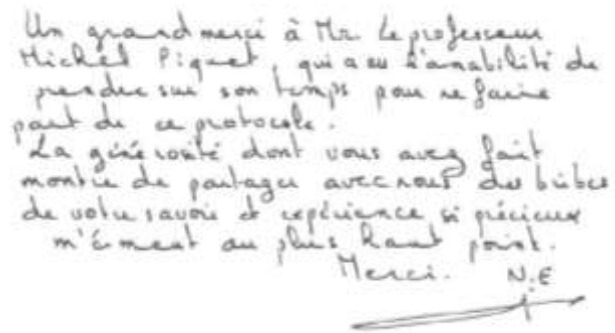 Un grand merci à Mr. Le professeur
Michel Piquet, qui a eu l'amabilité de
prendre sur son temps pour me faire
part de ce protocole.
La générosité dont vous avez fait
montre de partager avec nous des bribes
de votre savoir et expérience si précieux
m'émeut au plus haut point.
Merci. N.E